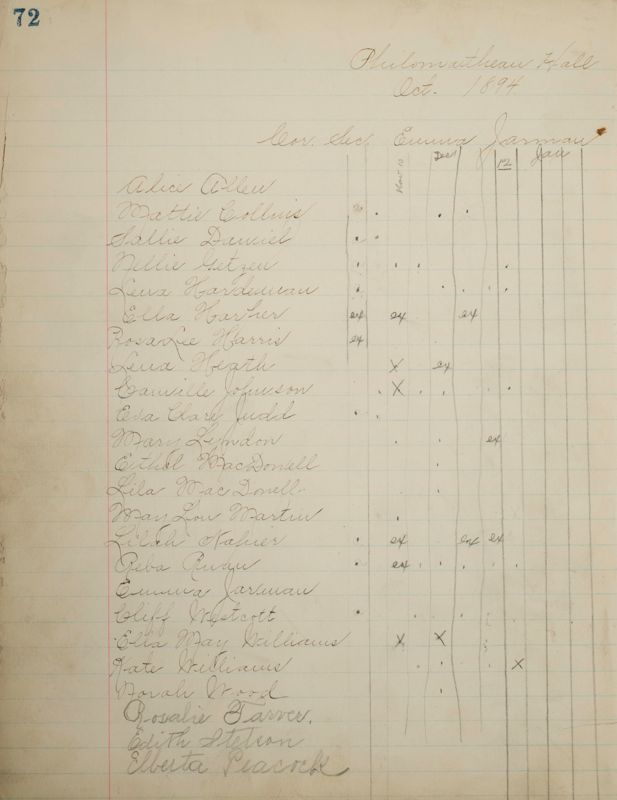 72
Philomathean Hall
Oct. 1894
Cor. Sec. Emma Jarman
Nov 10 Dec 1 12 Jan
Alice Allen
Mattie Collins
Sallie Daniel
Nellie Getzen
Lena Hardeman
Ella Harber ex ex ex
Rosa Lee Harris ex
Lena Heath X ex
Camille Johnson X
Eva Clare Judd
Mary Lyndon ex
Ethel MacDonell
Lila MacDonell
May Lou Martin
Lilah Napier ex ex ex
Reba ex
Emma Jarman
Cliff Westcott
Ella May Williams X X
Kate Williams X
Norah Wood
Rosalie Tarver.
Edith Stetson
Elberta Peacock